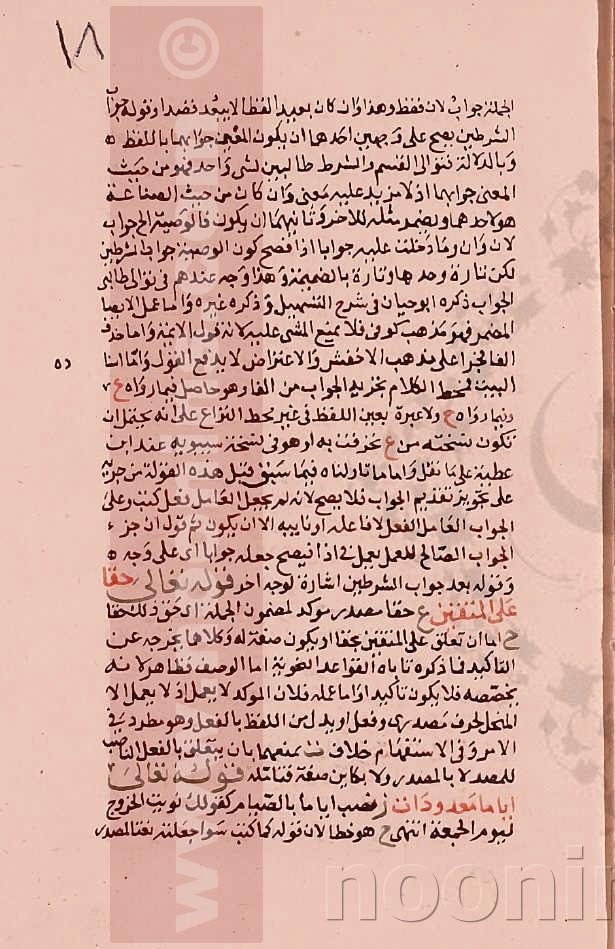 ١٨
الجملة جواب لان فقط وهذا وان كان بعيد القظا لا يبعد قصدا وقوله جزآ
الشرطين يصح على وجهين احدهما ان يكون المعنى جوابهما باللفظ
وبالدلالة فتوالى القسم والشرط طالبين لشى واحد فهو من حيث
المعنى جوابهما اذ لا مزيد عليه معنى وان كان من حيث الصناعة
هو لاحدهما ويضمر مثله للاخر وثانيهما ان يكون فالوصية الجواب
لان وان وما دخلت عليه جوابا اذا فصح كون الوصية جواب الشرطين
لكن تارة وحدها وتارة بالضميمة وهذا وجه عندهم فى توالى طالبى
الجواب ذكره ابوحيان فى شرح التسهيل وذكره غيره واما عمل الايصا
المضمر فهو مذهب كوفى فلا يمنع المشى عليه لانه قول الايمة واما حذف
الفا لخبر على مذهب الاخفش والاعتراض لا يدفع القول واما انشا
البيت فمحط الكلام تجريد الجواب من الفا وهو حاصل فيما رواه ع
وفيما رواه ح ولا عبرة بعين اللفظ فى غير محط النزاع على انه يحتمل ان
تكون نسخته من ع تحرفت به او هو فى نسخة سيبويه عند ابن
عطية على ما نقل واما ما تاولناه فيما سبق قبل هذه القولة من جريه
على تجويز تقديم الجواب فلا يصح لانه لم يجعل العامل فعل كتب وعلى
الجواب العامل الفعل لا فاعله او نايبه الا ان يكون ثم قول ان جزء
الجواب الصالح للعمل يعمل فى اذا فيصح جعله جوابا اى على وجه
وقوله بعد جواب الشرطين اشارة لوجه اخر قوله تعالى حقا
على المتقين ع حقا مصدر موكد لمضمون الجملة اى حق ذلك حقا
ح اما ان تعلق على المتقين بحقا او يكون صفة له وكلاهما يخرجه عن
التاكيد فما ذكره تاباه القواعد النحوية اما الوصف فظاهر لانه
يخصصه فلا يكون تاكيدا واما عمله فلان الموكد لا يعمل اذ لا يعمل الا
المنحل لحرف مصدرى وفعل او بدل من اللفظ بالفعل وهو مطرد فى
الامر وفى الاستفهام خلاف ت بمنعهما بان يتعلق بالفعل الناصب
للمصدر لا بالمصدر ولا بكاين صفة فتامله قوله تعالى
اياما معدودات ز نصب اياما بالصيام كقولك نويت الخروج
ليوم الجمعة انتهى ح هو خطا لان قوله كما كتب سوا جعلته نعتا لمصدر
www
noonin